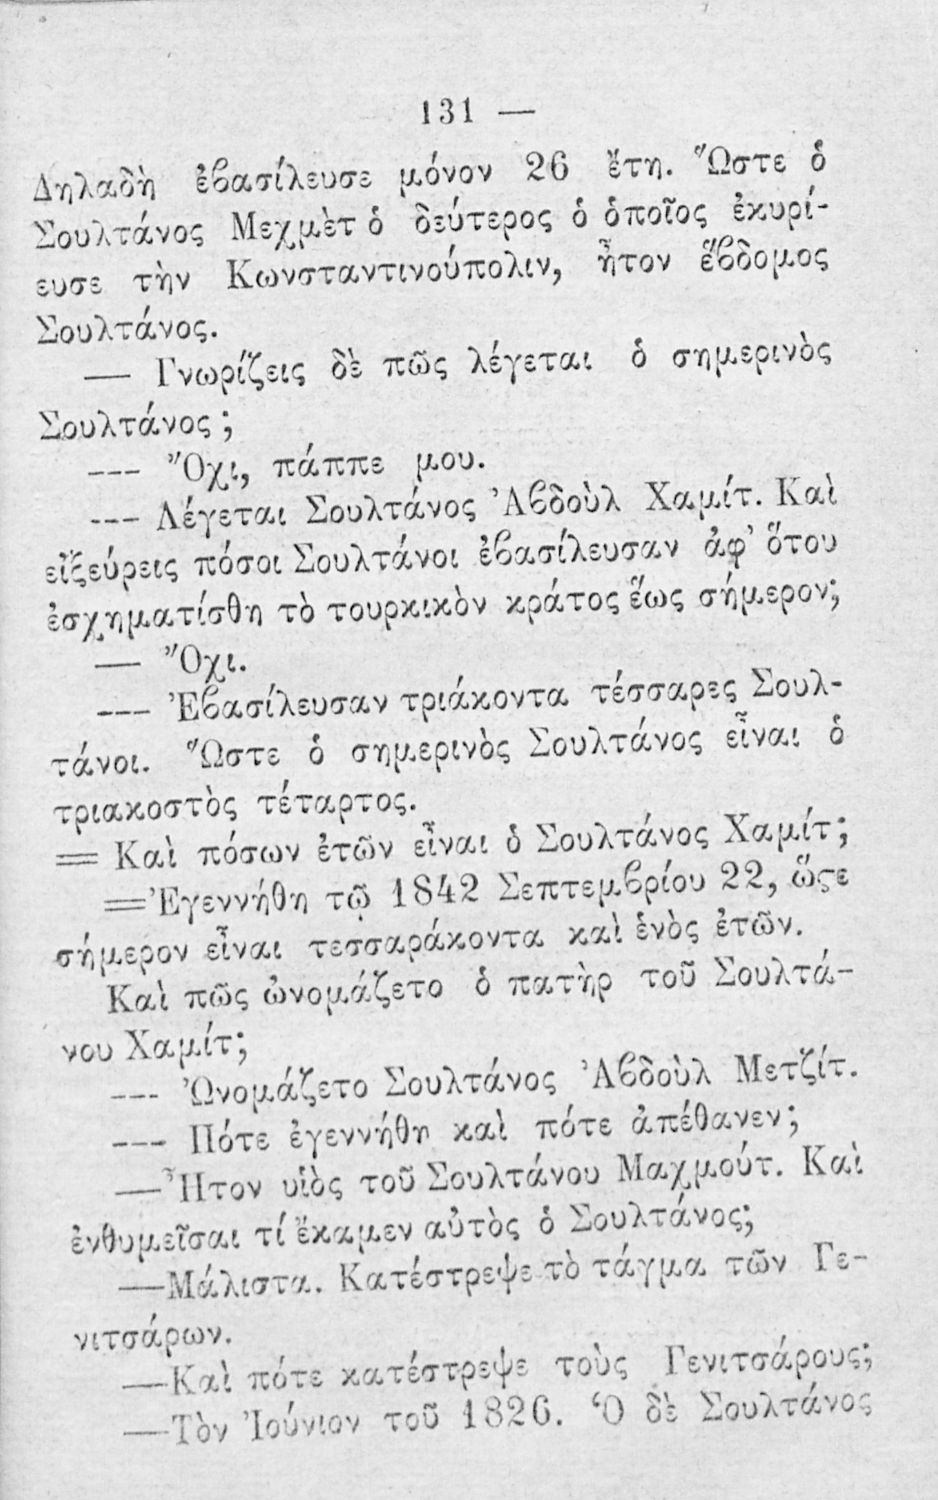 131 —
Δηλαδὴ ἐβασίλευσε μόνον 26 ἔτη. Ὥστε ὁ
Σουλτάνος Μεχμὲτ ὁ δεύτερος ὁ ὁποῖος ἐκυρί-
ευσε τὴν Κωνσταντινούπολιν, ἦτον ἕβδομος
Σουλτάνος.
— Γνωρίζεις δὲ πῶς λέγεται ὁ σημερινὸς
Σουλτάνος ;
--- Ὄχι, πάππε μου.
--- Λέγεται Σουλτάνος Ἀβδοὺλ Χαμίτ. Καὶ
εἴξεύρεις πόσοι Σουλτάνοι ἐβασίλευσαν ἀφ' ὅτου
ἐσχηματίσθη τὸ τουρκικὸν κράτος ἕως σήμερον;
— Ὄχι.
--- Ἐβασίλευσαν τριάκοντα τέσσαρες Σουλ-
τάνοι. Ὥστε ὁ σημερινὸς Σουλτάνος εἶναι ὁ
τριακοστὸς τέταρτος.
= Καὶ πόσων ἐτῶν εἶναι ὁ Σουλτάνος Χαμίτ;
=Ἐγεννήθη τῷ 1842 Σεπτεμβρίου 22, ὥςε
σήμερον εἶναι τεσσαράκοντα καὶ ἑνὸς ἐτῶν.
Καὶ πῶς ὠνομάζετο ὁ πατὴρ τοῦ Σουλτά-
νου Χαμίτ;
--- Ὠνομάζετο Σουλτάνος Ἀβδοὺλ Μετζίτ.
--- Πότε ἐγεννήθη καὶ πότε ἀπέθανεν;
—Ἦτον υἱὸς τοῦ Σουλτάνου Μαχμούτ. Καὶ
ἐνθυμεῖσαι τί ἔκαμεν αὐτὸς ὁ Σουλτάνος;
—Μάλιστα. Κατέστρεψε τὸ τάγμα τῶν Γε-
νιτσάρων.
—Καὶ πότε κατέστρεψε τοὺς Γενιτσάρους;
—Τὸν Ἰούνιον τοῦ 1826. Ὁ δὲ Σουλτάνος